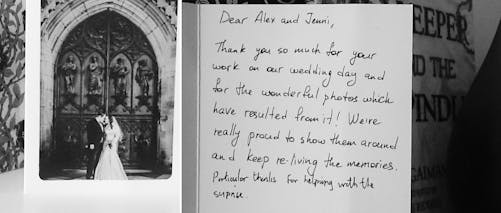 Dear Alex and Jenni,
Thank you so much for your
work on our wedding day and
for the wonderful photos which
have resulted from it! We're
really proud to show them around
and keep re-living the memories.
Particular thanks for helping with the
suprise.
EEPER
ND THE
INDL
GAIMAN